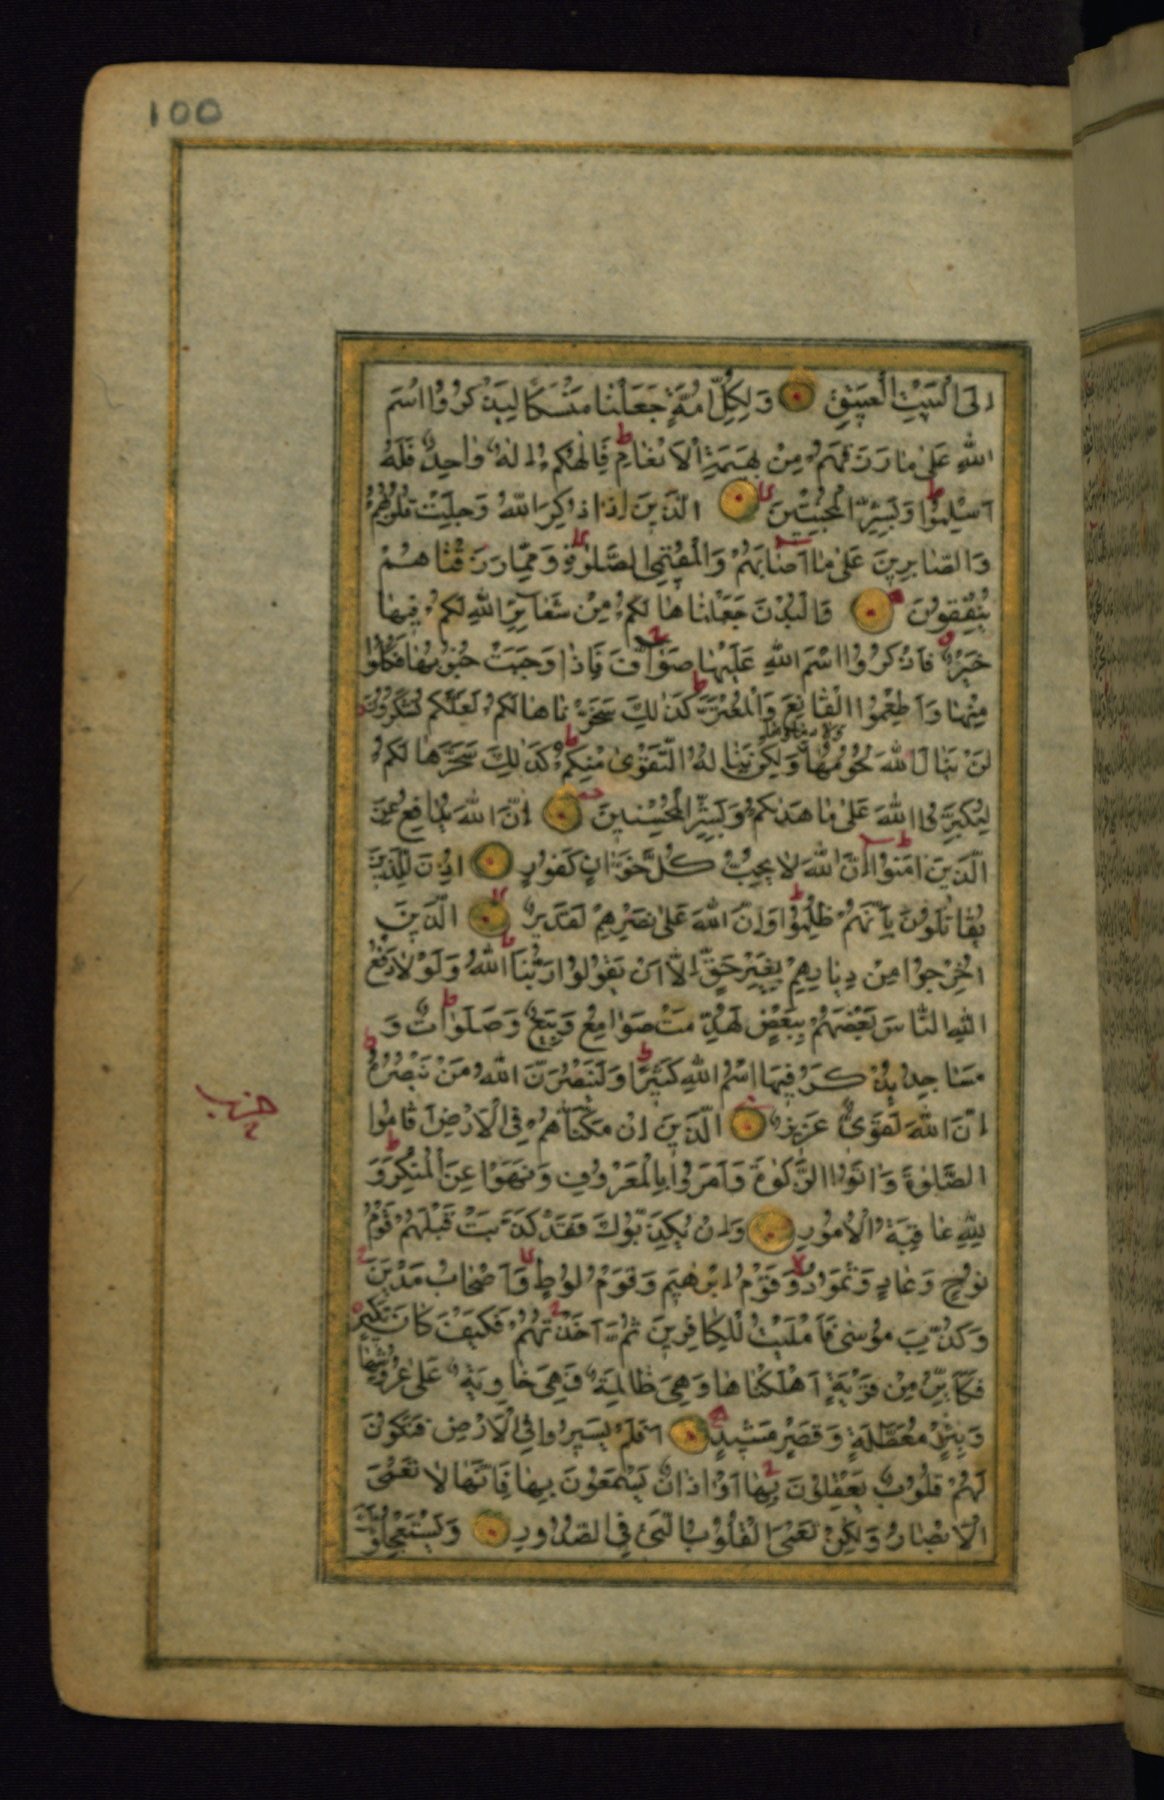 100
اِلَى الْبَيْتِ الْعَتِيقِ وَلِكُلِّ اُمَّةٍ جَعَلْنَا مَنْسَكًا لِيَذْكُرُوا اسْمَ
اللّٰهِ عَلٰى مٰا رَزَقَهُمْ مِنْ بَهِيمَةِ الْاَنْعٰامِ فَاِلٰهُكُمْ اِلٰهٌ وٰاحِدٌ فَلَهُ
اَسْلِمُوا وَبَشِّرِ الْمُخْبِتِينَ الَّذِينَ اِذٰا ذُكِرَ اللّٰهُ وَجِلَتْ قُلُوبُهُمْ
وَالصّٰابِرِينَ عَلٰى مٰا اَصٰابَهُمْ وَالْمُقِيمِى الصَّلٰوةِ وَمِمّٰا رَزَقْنٰاهُمْ
يُنْفِقُونَ وَالْبُدْنَ جَعَلْنٰاهٰا لَكُمْ مِنْ شَعٰائِرِ اللّٰهِ لَكُمْ فِيهٰا
خَيْرٌ فَاذْكُرُوا اسْمَ اللّٰهِ عَلَيْهٰا صَوٰافَّ فَاِذٰا وَجَبَتْ جُنُوبُهٰا فَكُلُوا
مِنْهٰا وَاَطْعِمُوا الْقٰانِعَ وَالْمُعْتَرَّ كَذٰلِكَ سَخَّرْنٰاهٰا لَكُمْ لَعَلَّكُمْ تَشْكُرُونَ
لَنْ يَنٰالَ اللّٰهَ لُحُومُهٰا وَلٰكِنْ يَنٰالُهُ التَّقْوٰى مِنْكُمْ كَذٰلِكَ سَخَّرَهٰا لَكُمْ
لِتُكَبِّرُوا اللّٰهَ عَلٰى مٰا هَدٰىكُمْ وَبَشِّرِ الْمُحْسِنِينَ اِنَّ اللّٰهَ يُدٰافِعُ عَنِ
الَّذِينَ اٰمَنُوا اِنَّ اللّٰهَ لٰا يُحِبُّ كُلَّ خَوّٰانٍ كَفُورٍ اُذِنَ لِلَّذِينَ
يُقٰاتَلُونَ بِاَنَّهُمْ ظُلِمُوا وَاِنَّ اللّٰهَ عَلٰى نَصْرِهِمْ لَقَدِيرٌ الَّذِينَ
اُخْرِجُوا مِنْ دِيٰارِهِمْ بِغَيْرِ حَقٍّ اِلّٰا اَنْ يَقُولُوا رَبُّنَا اللّٰهُ وَلَوْلٰا دَفْعُ
اللّٰهِ النّٰاسَ بَعْضَهُمْ بِبَعْضٍ لَهُدِّمَتْ صَوٰامِعُ وَبِيَعٌ وَصَلَوٰاتٌ وَ
مَسٰاجِدُ يُذْكَرُ فِيهَا اسْمُ اللّٰهِ كَثِيرًا وَلَيَنْصُرَنَّ اللّٰهُ مَنْ يَنْصُرُهُ
اِنَّ اللّٰهَ لَقَوِىٌّ عَزِيزٌ الَّذِينَ اِنْ مَكَّنّٰاهُمْ فِى الْاَرْضِ اَقٰامُوا
حزب
الصَّلٰوةَ وَاٰتَوُا الزَّكٰوةَ وَاَمَرُوا بِالْمَعْرُوفِ وَنَهَوْا عَنِ الْمُنْكَرِ وَ
لِلّٰهِ عٰاقِبَةُ الْاُمُورِ وَاِنْ يُكَذِّبُوكَ فَقَدْ كَذَّبَتْ قَبْلَهُمْ قَوْمُ
نُوحٍ وَعٰادٍ وَثَمُودُ وَقَوْمُ اِبْرٰهِيمَ وَقَوْمُ لُوطٍ وَاَصْحٰابُ مَدْيَنَ
وَكُذِّبَ مُوسٰى فَاَمْلَيْتُ لِلْكٰافِرِينَ ثُمَّ اَخَذْتُهُمْ فَكَيْفَ كٰانَ نَكِيرِ
فَكَاَيِّنْ مِنْ قَرْيَةٍ اَهْلَكْنٰاهٰا وَهِىَ ظٰالِمَةٌ فَهِىَ خٰاوِيَةٌ عَلٰى عُرُوشِهٰا
وَبِئْرٍ مُعَطَّلَةٍ وَقَصْرٍ مَشِيدٍ اَفَلَمْ يَسِيرُوا فِى الْاَرْضِ فَتَكُونَ
لَهُمْ قُلُوبٌ يَعْقِلُونَ بِهٰا اَوْ اٰذٰانٌ يَسْمَعُونَ بِهٰا فَاِنَّهٰا لٰا تَعْمَى
الْاَبْصٰارُ وَلٰكِنْ تَعْمَى الْقُلُوبُ الَّتِى فِى الصُّدُورِ وَيَسْتَعْجِلُونَكَ